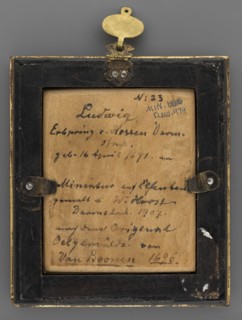 N: 23
Ludwig
Erbprinz v. Hessen Darm-
stadt.
geb. 16 April 1691.
Miniatur auf Elfenbein
gemalt v. W. Horst
Darmstadt 1907.
nach dem Original
Oelgemälde von
Van Boonen 1696.